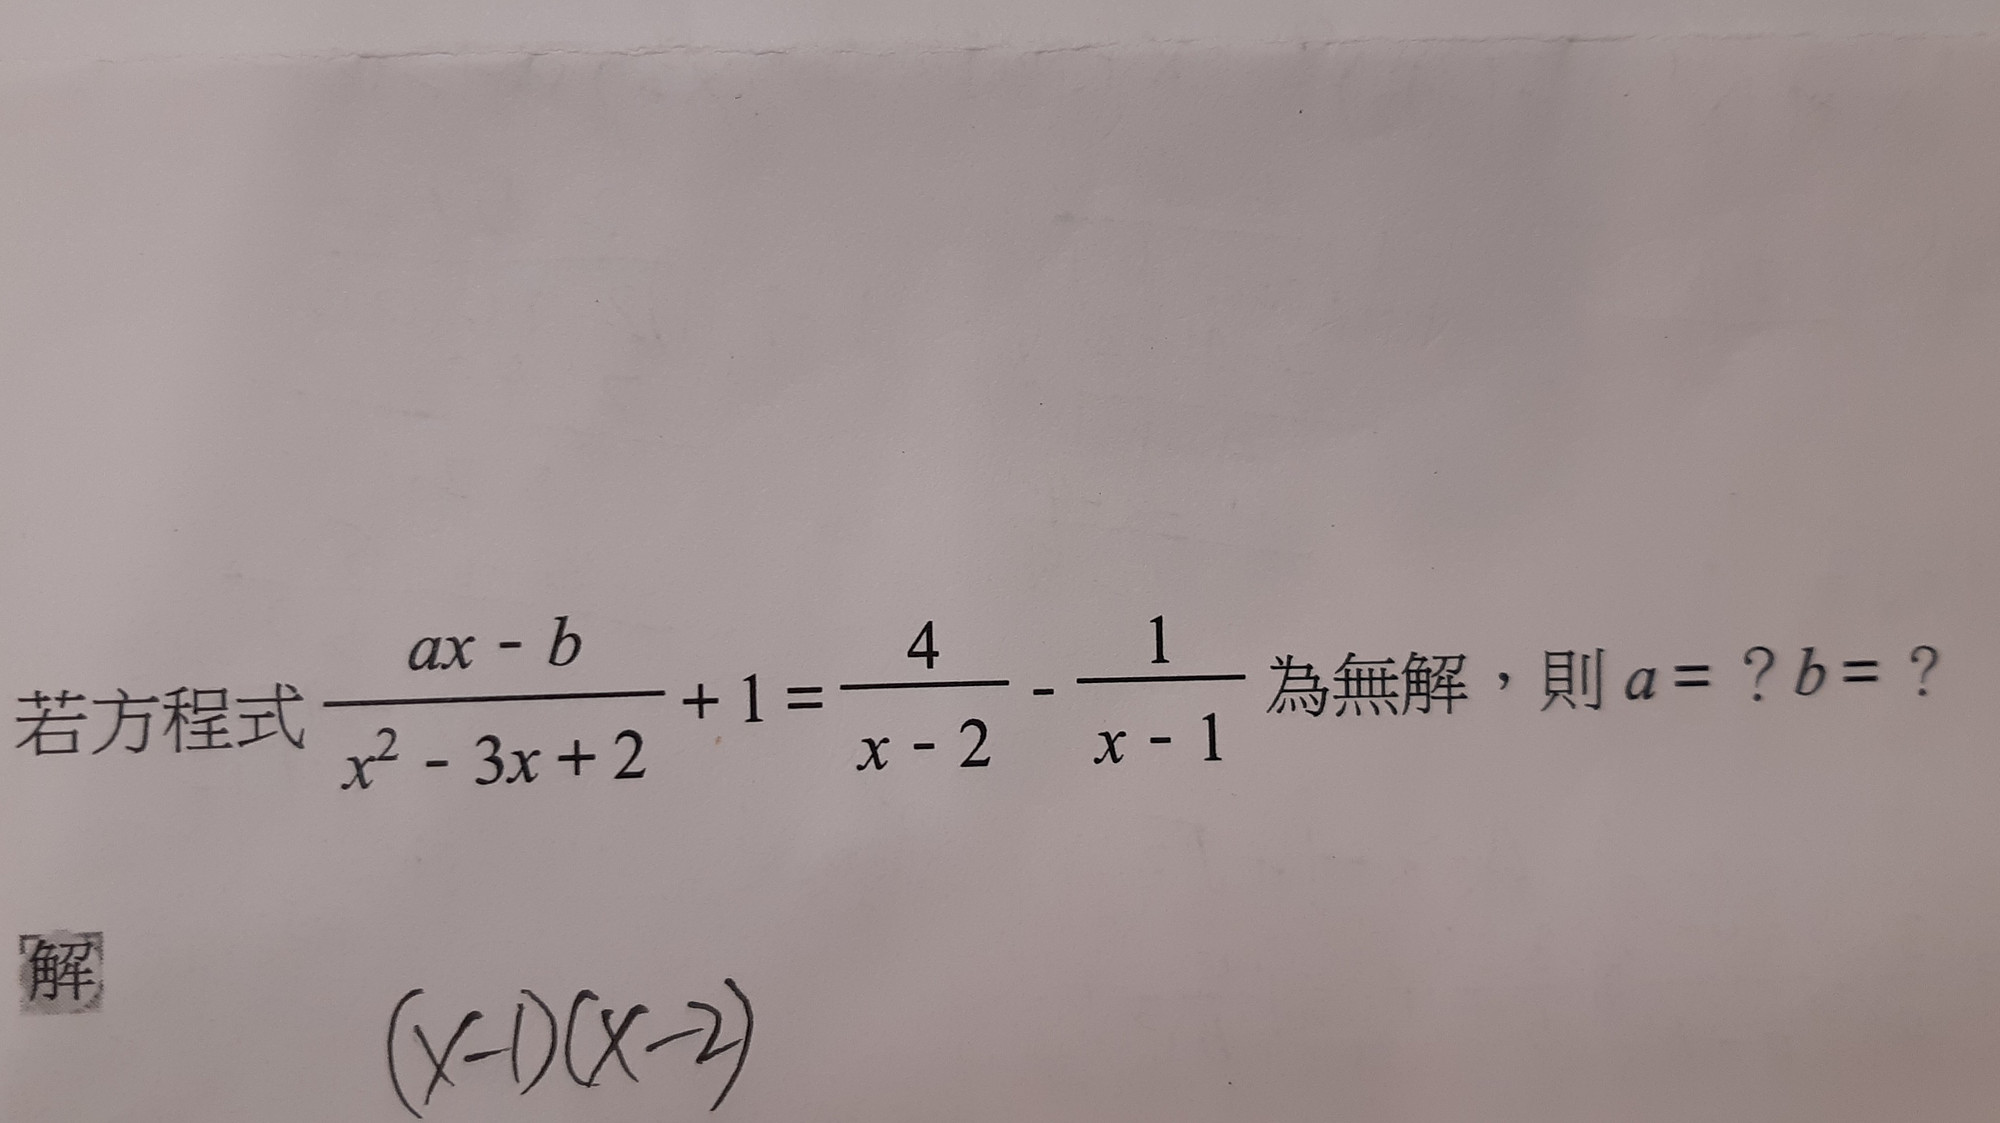 若方程式 \frac{ax - b}{x^2 - 3x + 2} + 1 = \frac{4}{x - 2} - \frac{1}{x - 1} 為無解,則 a = ? b = ?
解
(x-1)(x-2)